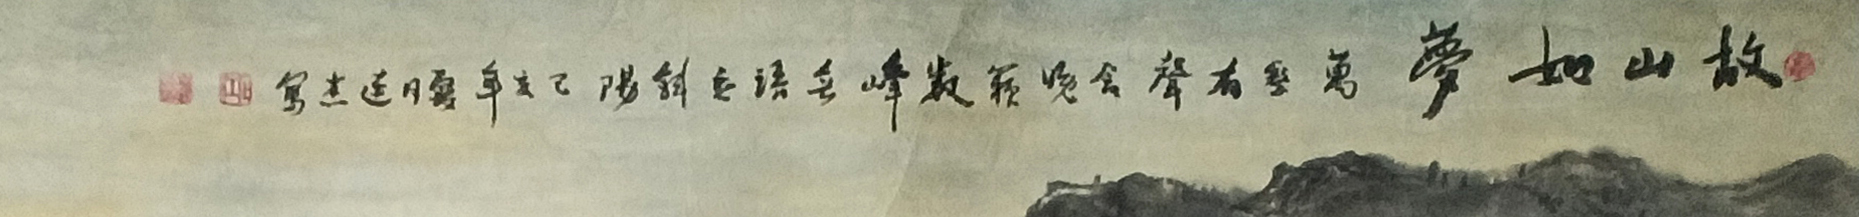 故山如夢 萬壑有聲含晚籟數峰無語立斜陽 己亥年夏月連杰寫